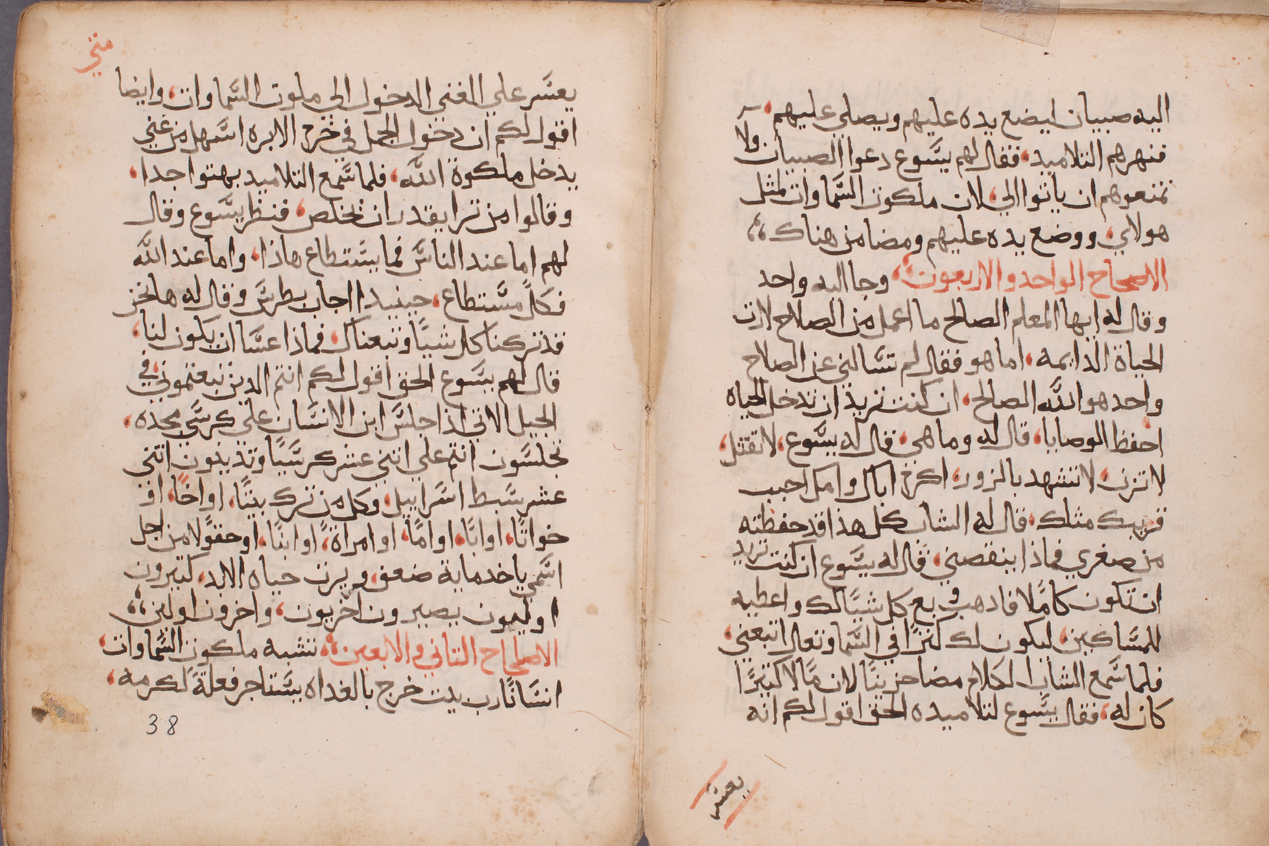 اليه صبيان ليضع يده عليهم ويصلى عليهم،
فنهرهم التلاميد، فقال لهم يسوع دعوا الصبيان ولا
تمنعوهم ان ياتوا الي، لان ملكوت السماوات لمثل
هولاي، ووضع يده عليهم ومضا من هناك،،
الاصحاح الواحد والاربعون، وجا اليه واحد
وقال له ايها المعلم الصالح ما اعمل من الصلاح لارت
الحياة الدايمه، اما هو فقال لم تسالني عن الصلاح
واحد هو الله الصالح، ان كنت تريد ان تدخل الحياه
احفظ الوصايا، قال له وما هي، قال له يسوع، لا تقتل،
لا تزن، لا تشهد بالزور، اكرم اباك وامك احبب
قريبك مثلك، قال له الشاب كل هدا قد حفظته
من صغري فماذا ينقصني، قال له يسوع ان كنت تريد
ان تكون كاملا فادهب وبع كل شيا لك واعطيه
للمساكين، ليكون لك كنزا في السما وتعال اتبعني،
فلما سمع الشاب الكلام مضا حزينا لان مالا كثيرا
كان له، فقال يسوع لتلاميده الحق اقول لكم انه
يعسر
متى
يعسر علي الغني الدخول الى ملكوت السماوات، وايضا
اقول لكم ان دخول الجمل في خرم الابره اسهل من غني
يدخل ملكوة الله، فلما سمع التلاميد بهتوا جدا،
وقالوا من ترا يقدر ان يخلص، فنظر يسوع وقال
لهم اما عند الناس فما يستطاع هاذا، واما عند الله
فكل مستطاع، حينيدا اجاب بطرس وقال له ها نحن
قد تركنا كل شيا وتبعناك، فماذا عسا ان يكون لنا،
قال لهم يسوع الحق اقول لكم انتم الدين تبعتموني في
الجيل الاتي اذا جلس ابن الانسان على كرسي مجده،
تجلسون انتم علي اتني عشر كرسيا وتدينون اتني
عشر سبط اسراييل، وكل من ترك بيتا، او اخا، او
خواتا، او ابا، او اما، او امراة، او ابنا، او حقولا من اجل
اسمي ياخد ماية ضعف، ويرت حياه الابد، كتيرون
اوليون يصيرون اخريون، واخرون اولين،،
الاصحاح التاني والابعين، تشبه ملكوت السماوات
انسانا رب بيت خرج بالغداه يستاجر فعلة لكرمه،
38